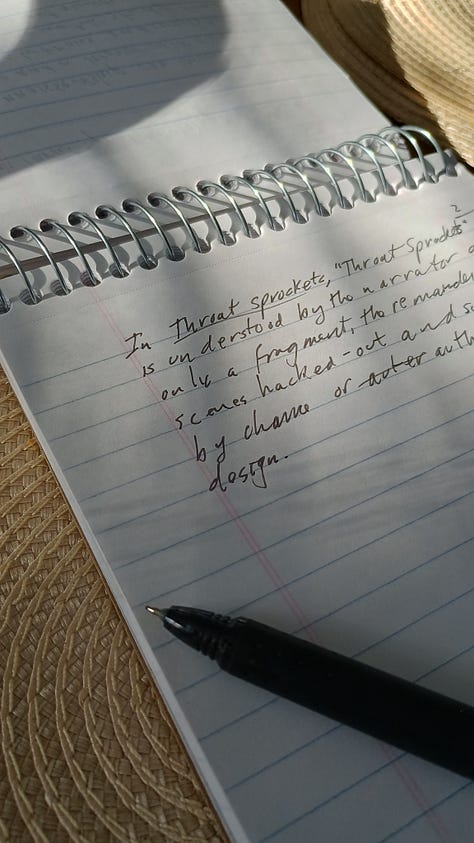 2
In Throat sprockets, "Throat Sprockets"
is understood by the narrator
only a fragment, the remainde
scenes hacked-out and s
by chance or auter auth
design.